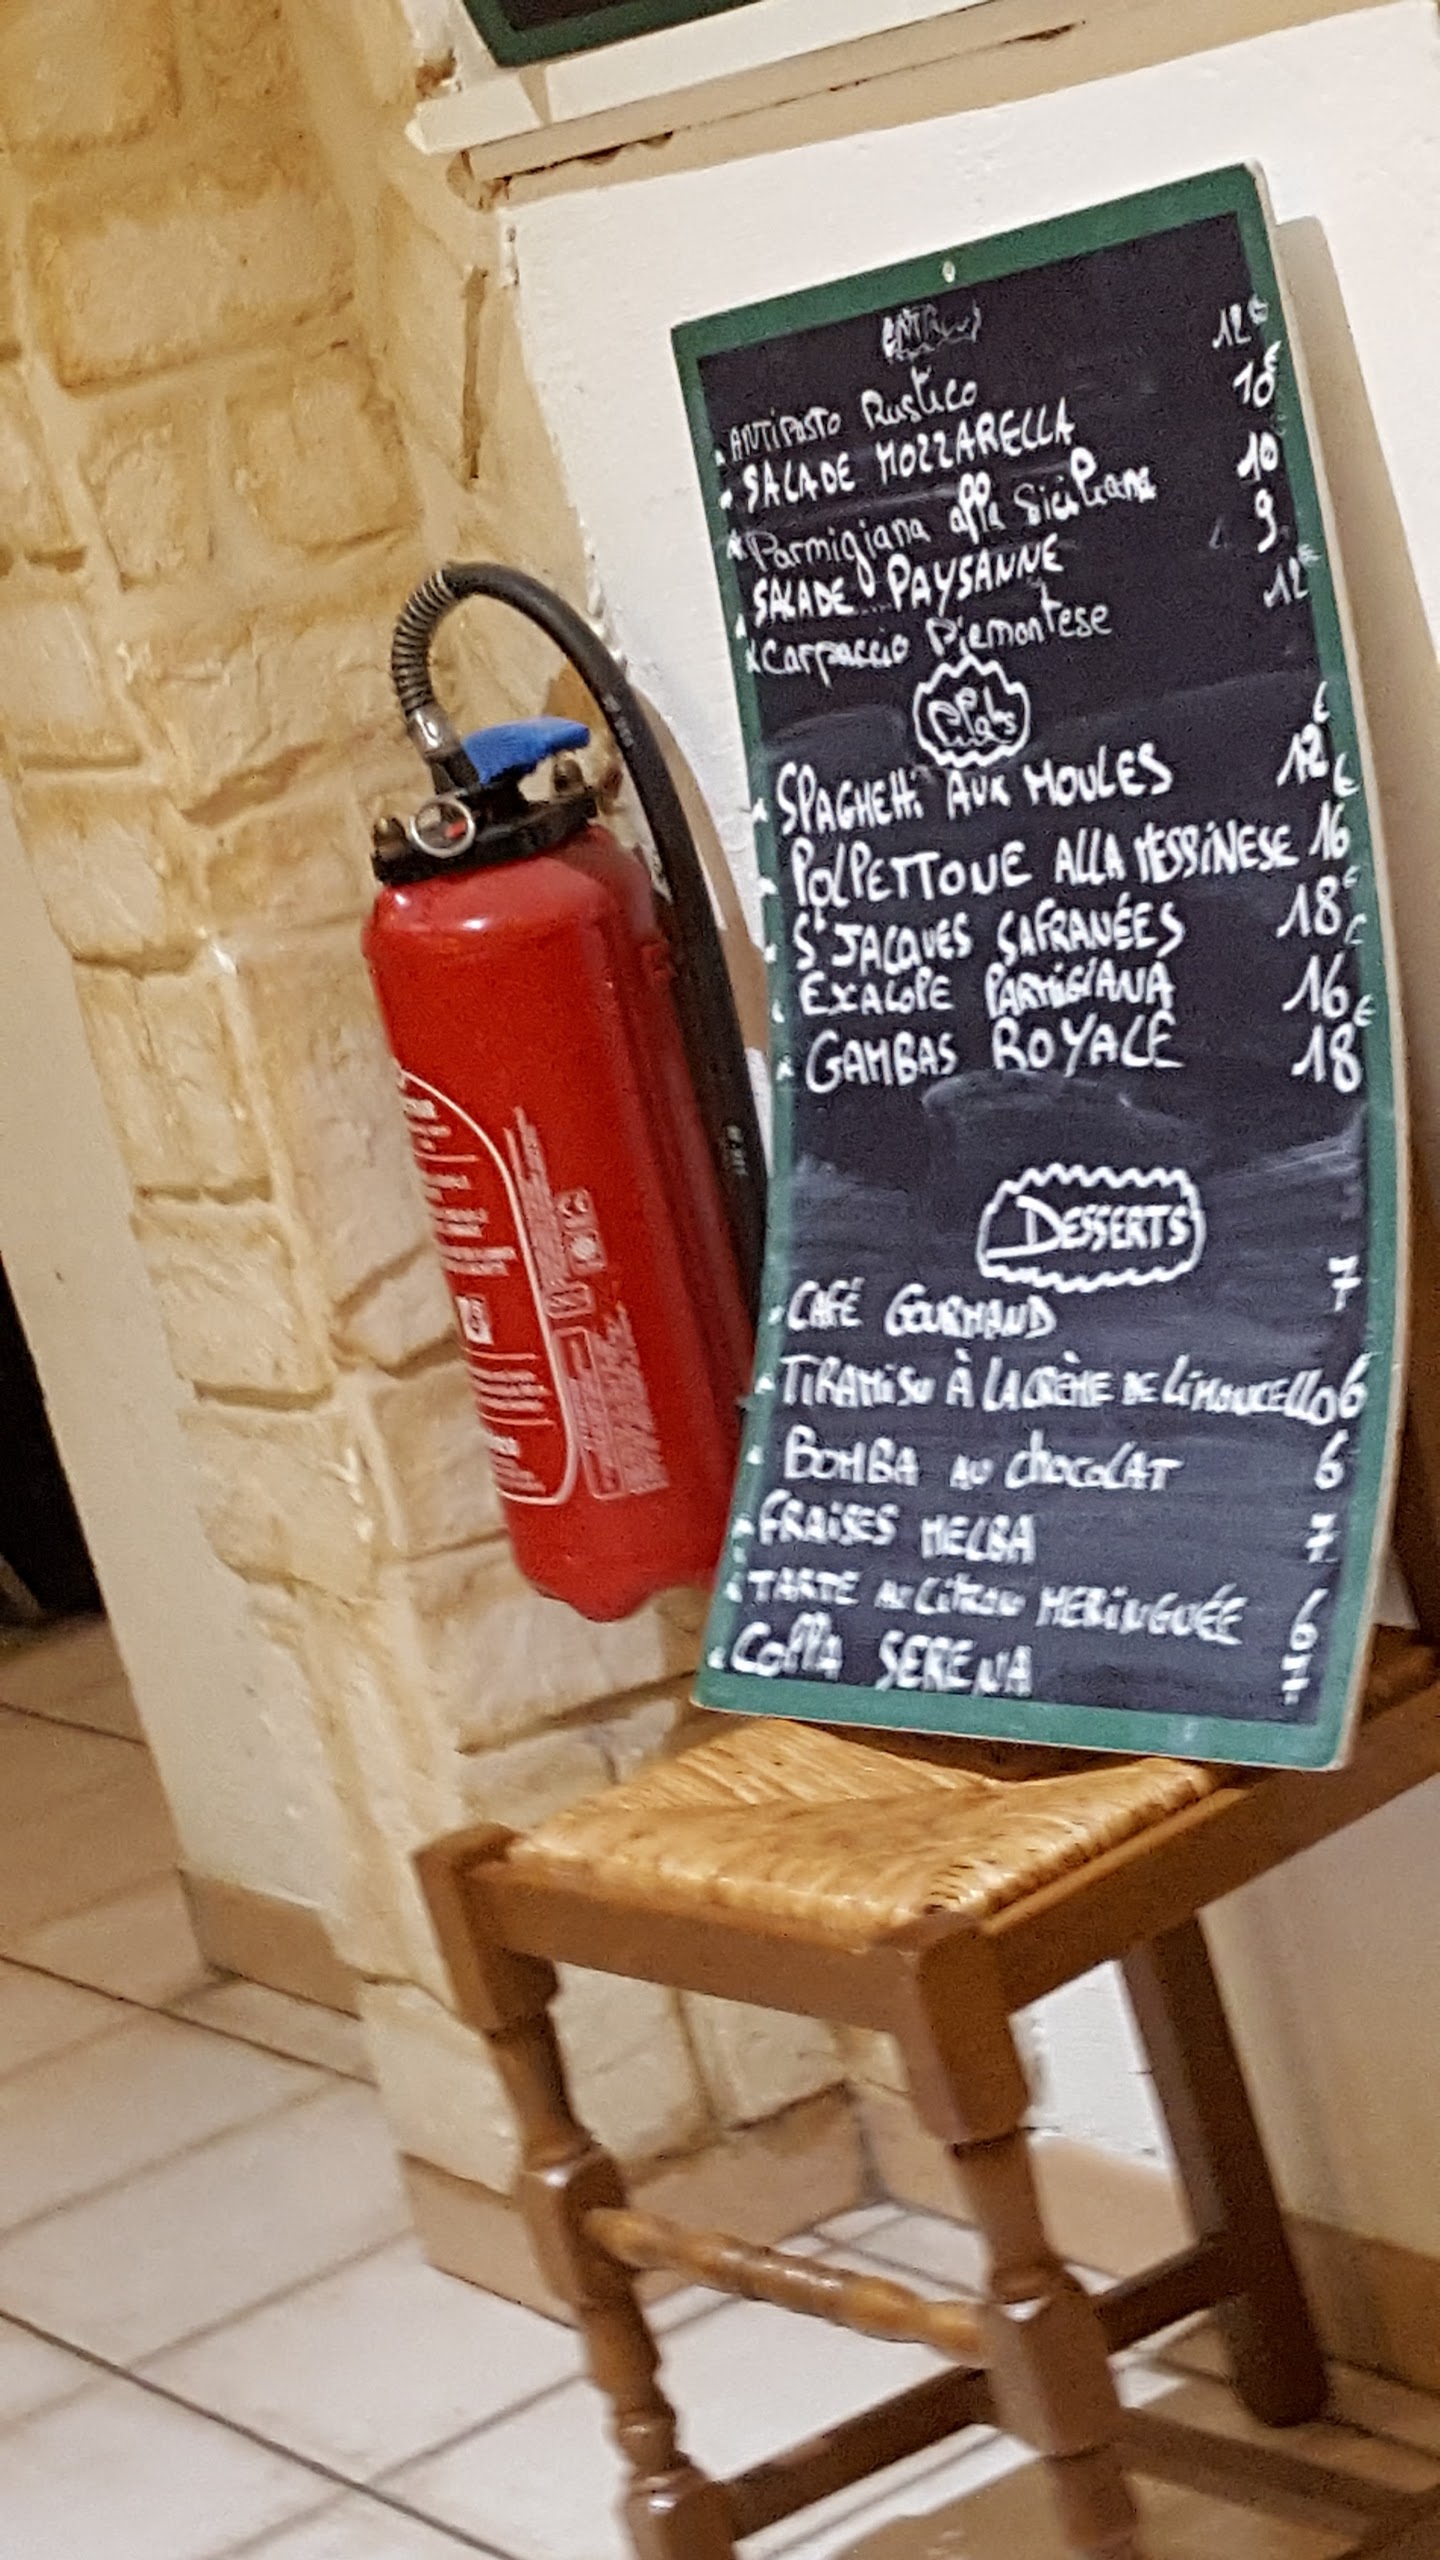 ENTRÉES
ANTIPASTO RUSTICO 12€
SALADE MOZZARELLA 10€
Parmigiana alla Siciliana 10
SALADE PAYSANNE 9
Carpaccio Piemontese 12€
Plats
SPAGHETTI AUX MOULES 12€
POLPETTONE ALLA MESSINESE 16€
ST JACQUES SAFRANÉES 18€
EXALOPE PARMIGIANA 16€
GAMBAS ROYALE 18€
DESSERTS
CAFÉ GOURMAND 7
TIRAMISU À LA CRÈME DE LIMONCELLO 6
BOMBA AU CHOCOLAT 6
FRAISES MELBA 7
TARTE AU CITRON MERINGUÉE 6
COPPA SERENA 7